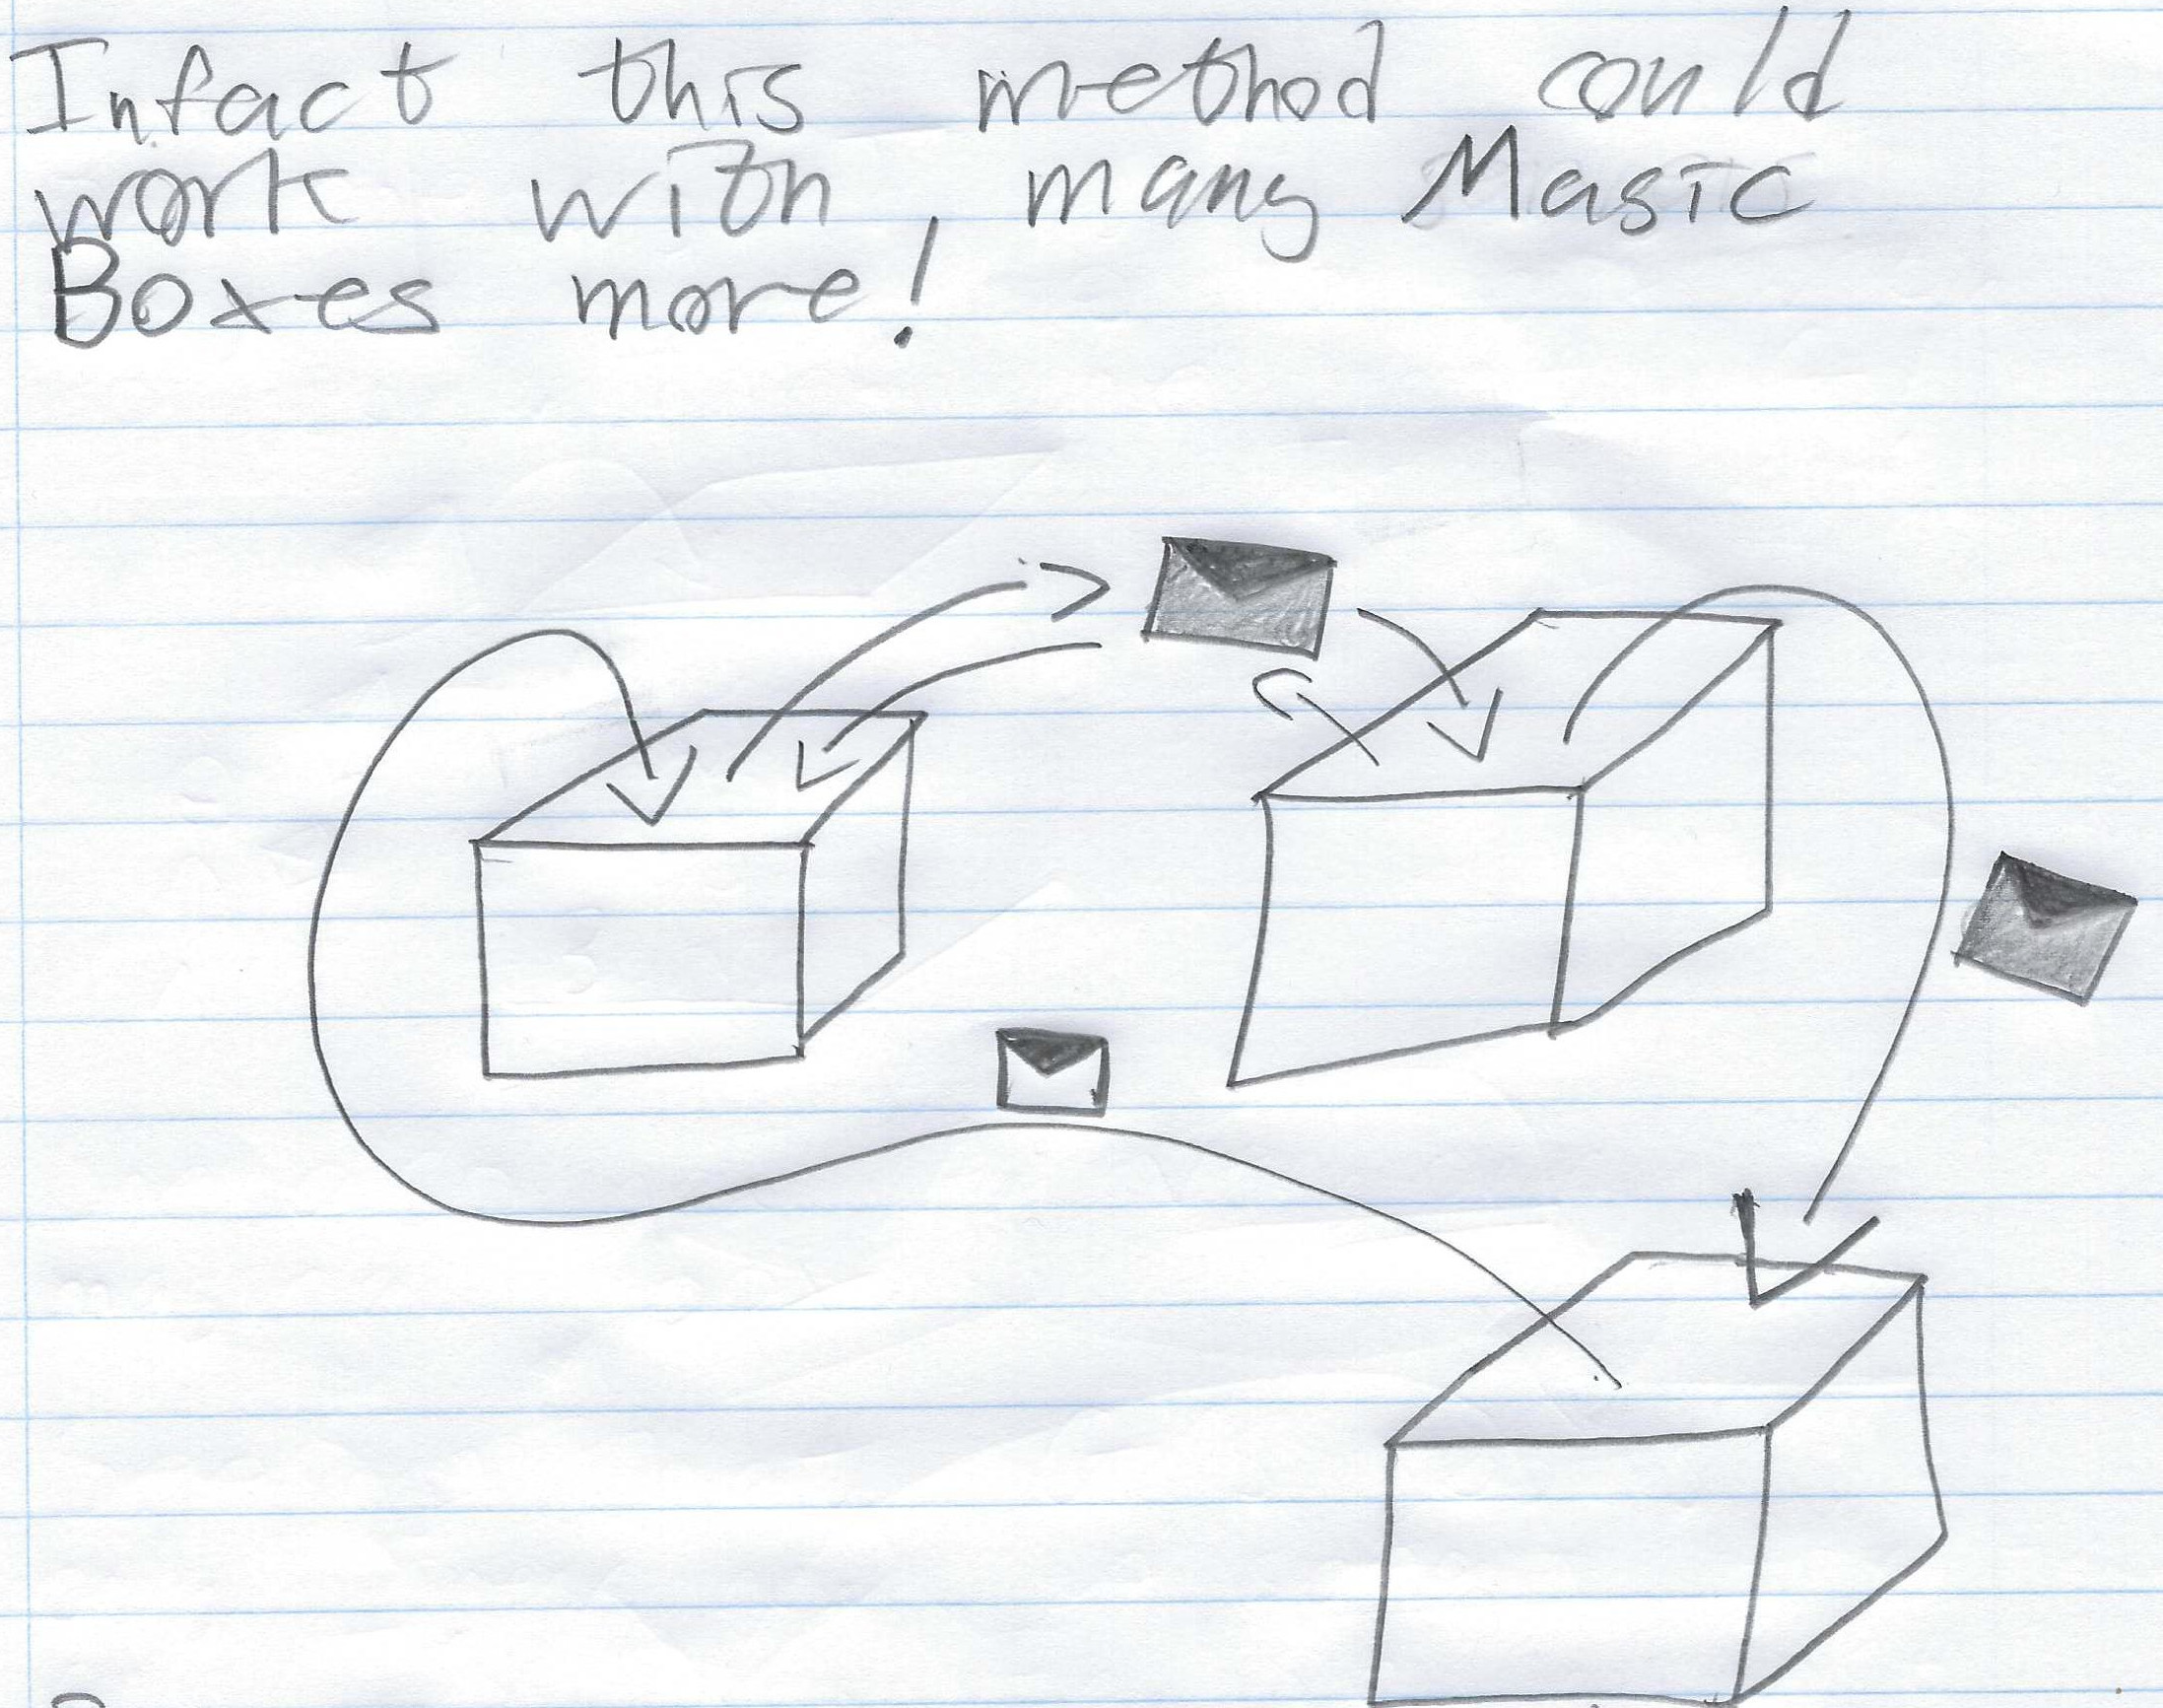 Infact this method could
work with, many Magic
Boxes more!